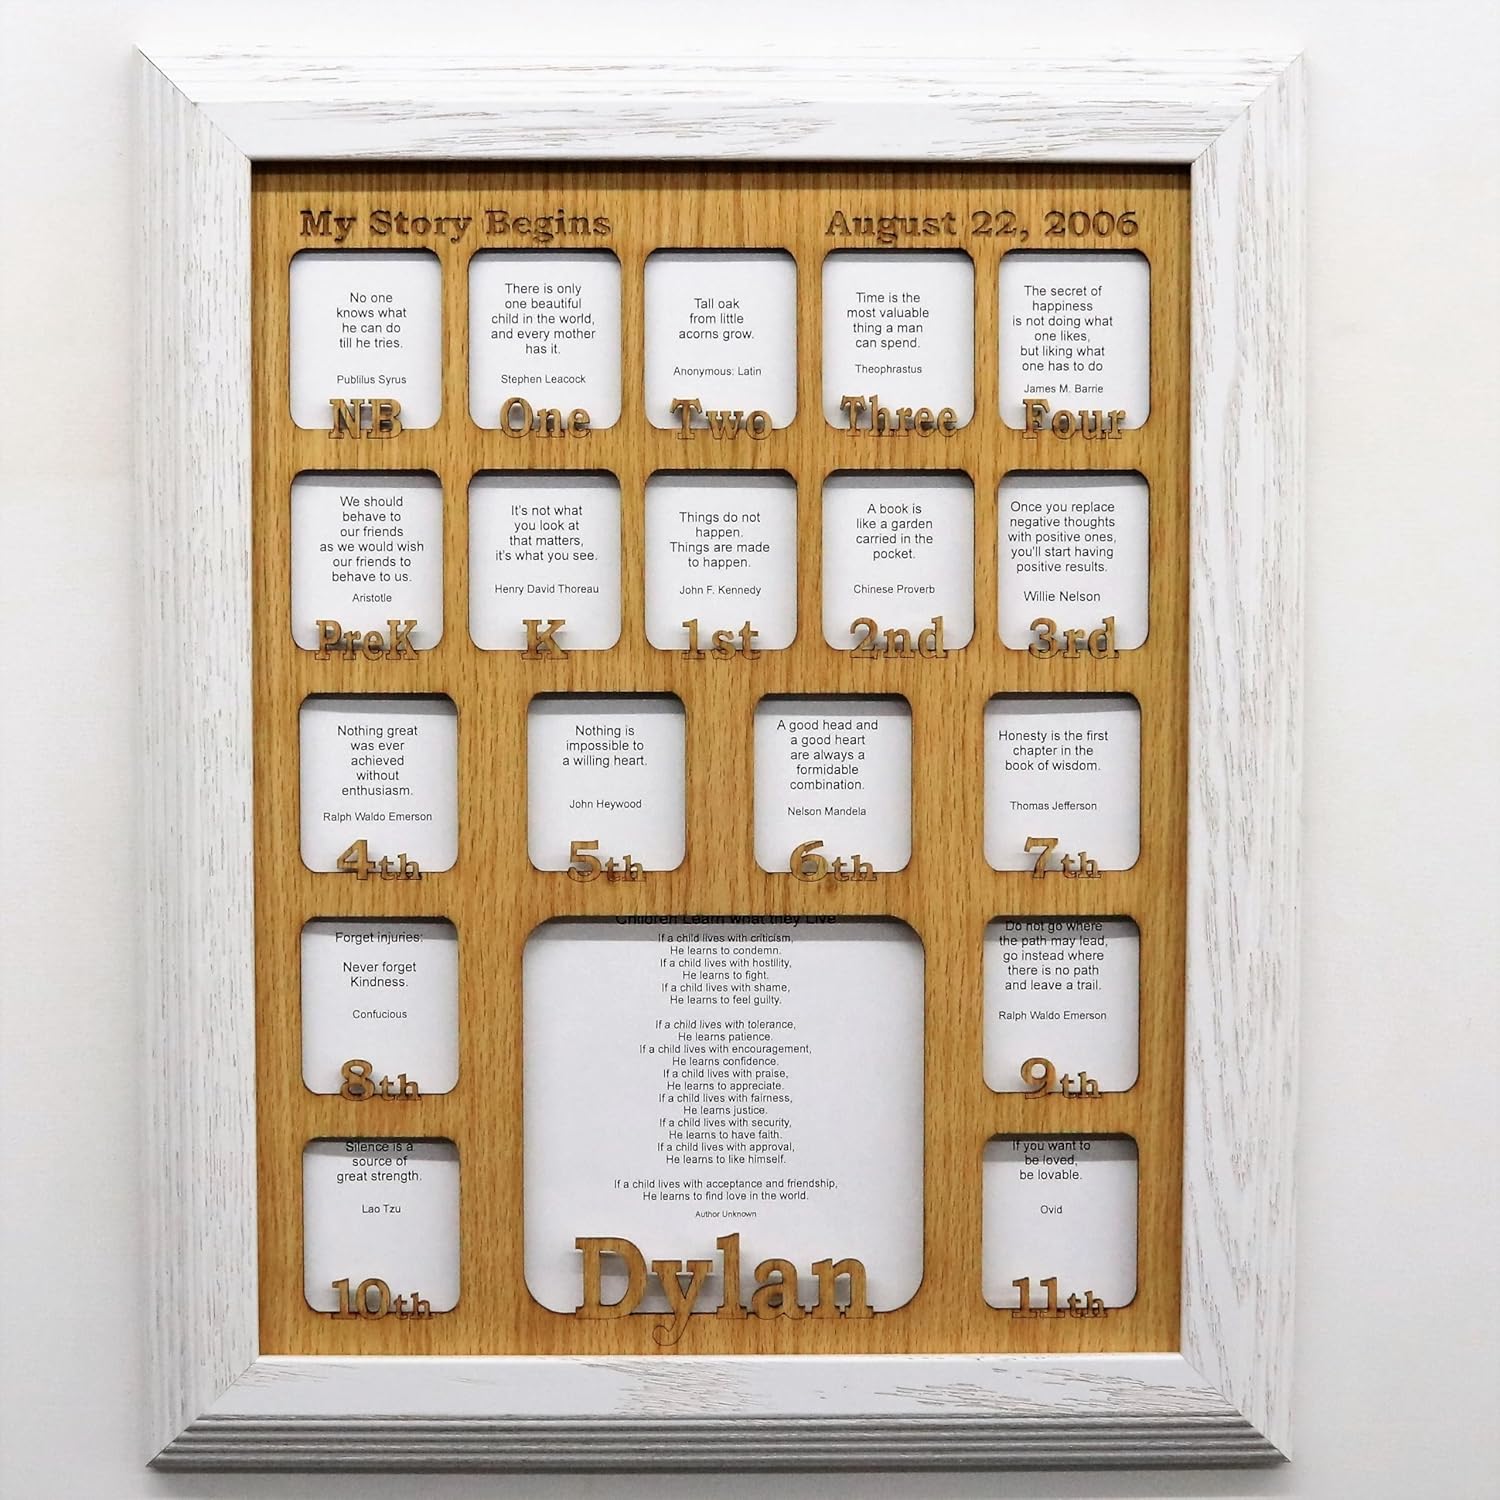 My Story Begins August 22, 2006
No one
knows what
he can do
till he tries.
Publilus Syrus
NB
There is only
one beautiful
child in the world,
and every mother
has it.
Stephen Leacock
One
Tall oak
from little
acorns grow.
Anonymous: Latin
Two
Time is the
most valuable
thing a man
can spend.
Theophrastus
Three
The secret of
happiness
is not doing what
one likes,
but liking what
one has to do
James M. Barrie
Four
We should
behave to
our friends
as we would wish
our friends to
behave to us.
Aristotle
PreK
It's not what
you look at
that matters,
it's what you see.
Henry David Thoreau
K
Things do not
happen.
Things are made
to happen.
John F. Kennedy
1st
A book is
like a garden
carried in the
pocket.
Chinese Proverb
2nd
Once you replace
negative thoughts
with positive ones,
you'll start having
positive results.
Willie Nelson
3rd
Nothing great
was ever
achieved
without
enthusiasm.
Ralph Waldo Emerson
4th
Nothing is
impossible to
a willing heart.
John Heywood
5th
A good head and
a good heart
are always a
formidable
combination.
Nelson Mandela
6th
Honesty is the first
chapter in the
book of wisdom.
Thomas Jefferson
7th
Forget injuries:
Never forget
Kindness.
Confucious
8th
Children Learn what they Live
If a child lives with criticism,
He learns to condemn.
If a child lives with hostility,
He learns to fight.
If a child lives with shame,
He learns to feel guilty.
If a child lives with tolerance,
He learns patience.
If a child lives with encouragement,
He learns confidence.
If a child lives with praise,
He learns to appreciate.
If a child lives with fairness,
He learns justice.
If a child lives with security,
He learns to have faith.
If a child lives with approval,
He learns to like himself.
If a child lives with acceptance and friendship,
He learns to find love in the world.
Author Unknown
Dylan
Do not go where
the path may lead,
go instead where
there is no path
and leave a trail.
Ralph Waldo Emerson
9th
Silence is a
source of
great strength.
Lao Tzu
10th
If you want to
be loved,
be lovable.
Ovid
11th